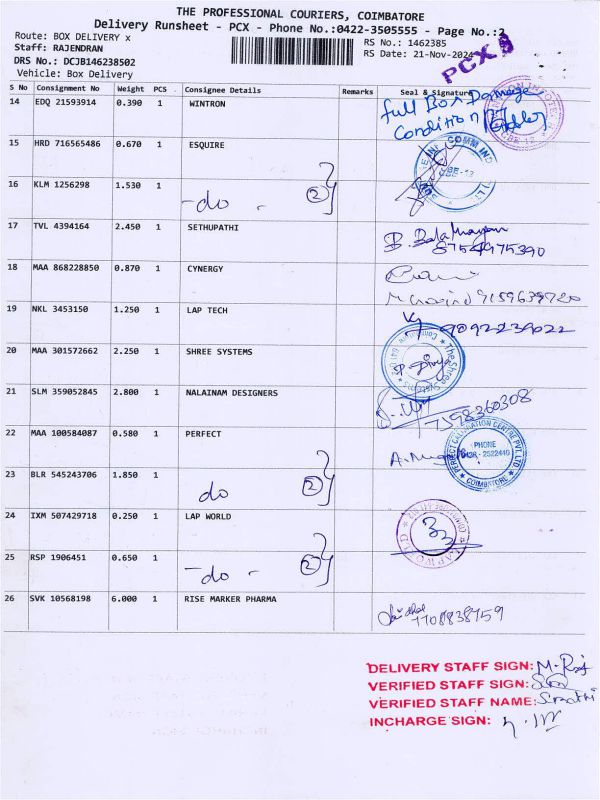 THE PROFESSIONAL COURIERS, COIMBATORE
Delivery Runsheet - PCX - Phone No.:0422-3505555 - Page No.:2
Route: BOX DELIVERY x
RS No.: 1462385
Staff: RAJENDRAN
RS Date: 21-Nov-2024
DRS No.: DCJB146238502
Vehicle: Box Delivery
PCX
S No Consignment No Weight PCS Consignee Details Remarks Seal & Signature
14 EDQ 21593914 0.390 1 WINTRON full Box Damage
Condition
15 HRD 716565486 0.670 1 ESQUIRE
16 KLM 1256298 1.530 1 -do - 2
17 TVL 4394164 2.450 1 SETHUPATHI
8754975390
18 MAA 868228850 0.870 1 CYNERGY
9159639720
19 NKL 3453150 1.250 1 LAP TECH 9092239022
20 MAA 301572662 2.250 1 SHREE SYSTEMS
21 SLM 359052845 2.800 1 NALAINAM DESIGNERS
7598360308
22 MAA 100584087 0.580 1 PERFECT
PERFECT CALIBRATION CENTRE PVT LTD
PHONE
COIMBATORE
23 BLR 545243706 1.850 1 do 2
24 IXM 507429718 0.250 1 LAP WORLD
25 RSP 1906451 0.650 1 -do - 2
26 SVK 10568198 6.000 1 RISE MARKER PHARMA
7708838759
DELIVERY STAFF SIGN: M. Raj
VERIFIED STAFF SIGN:
VERIFIED STAFF NAME: Smathi
INCHARGE SIGN: